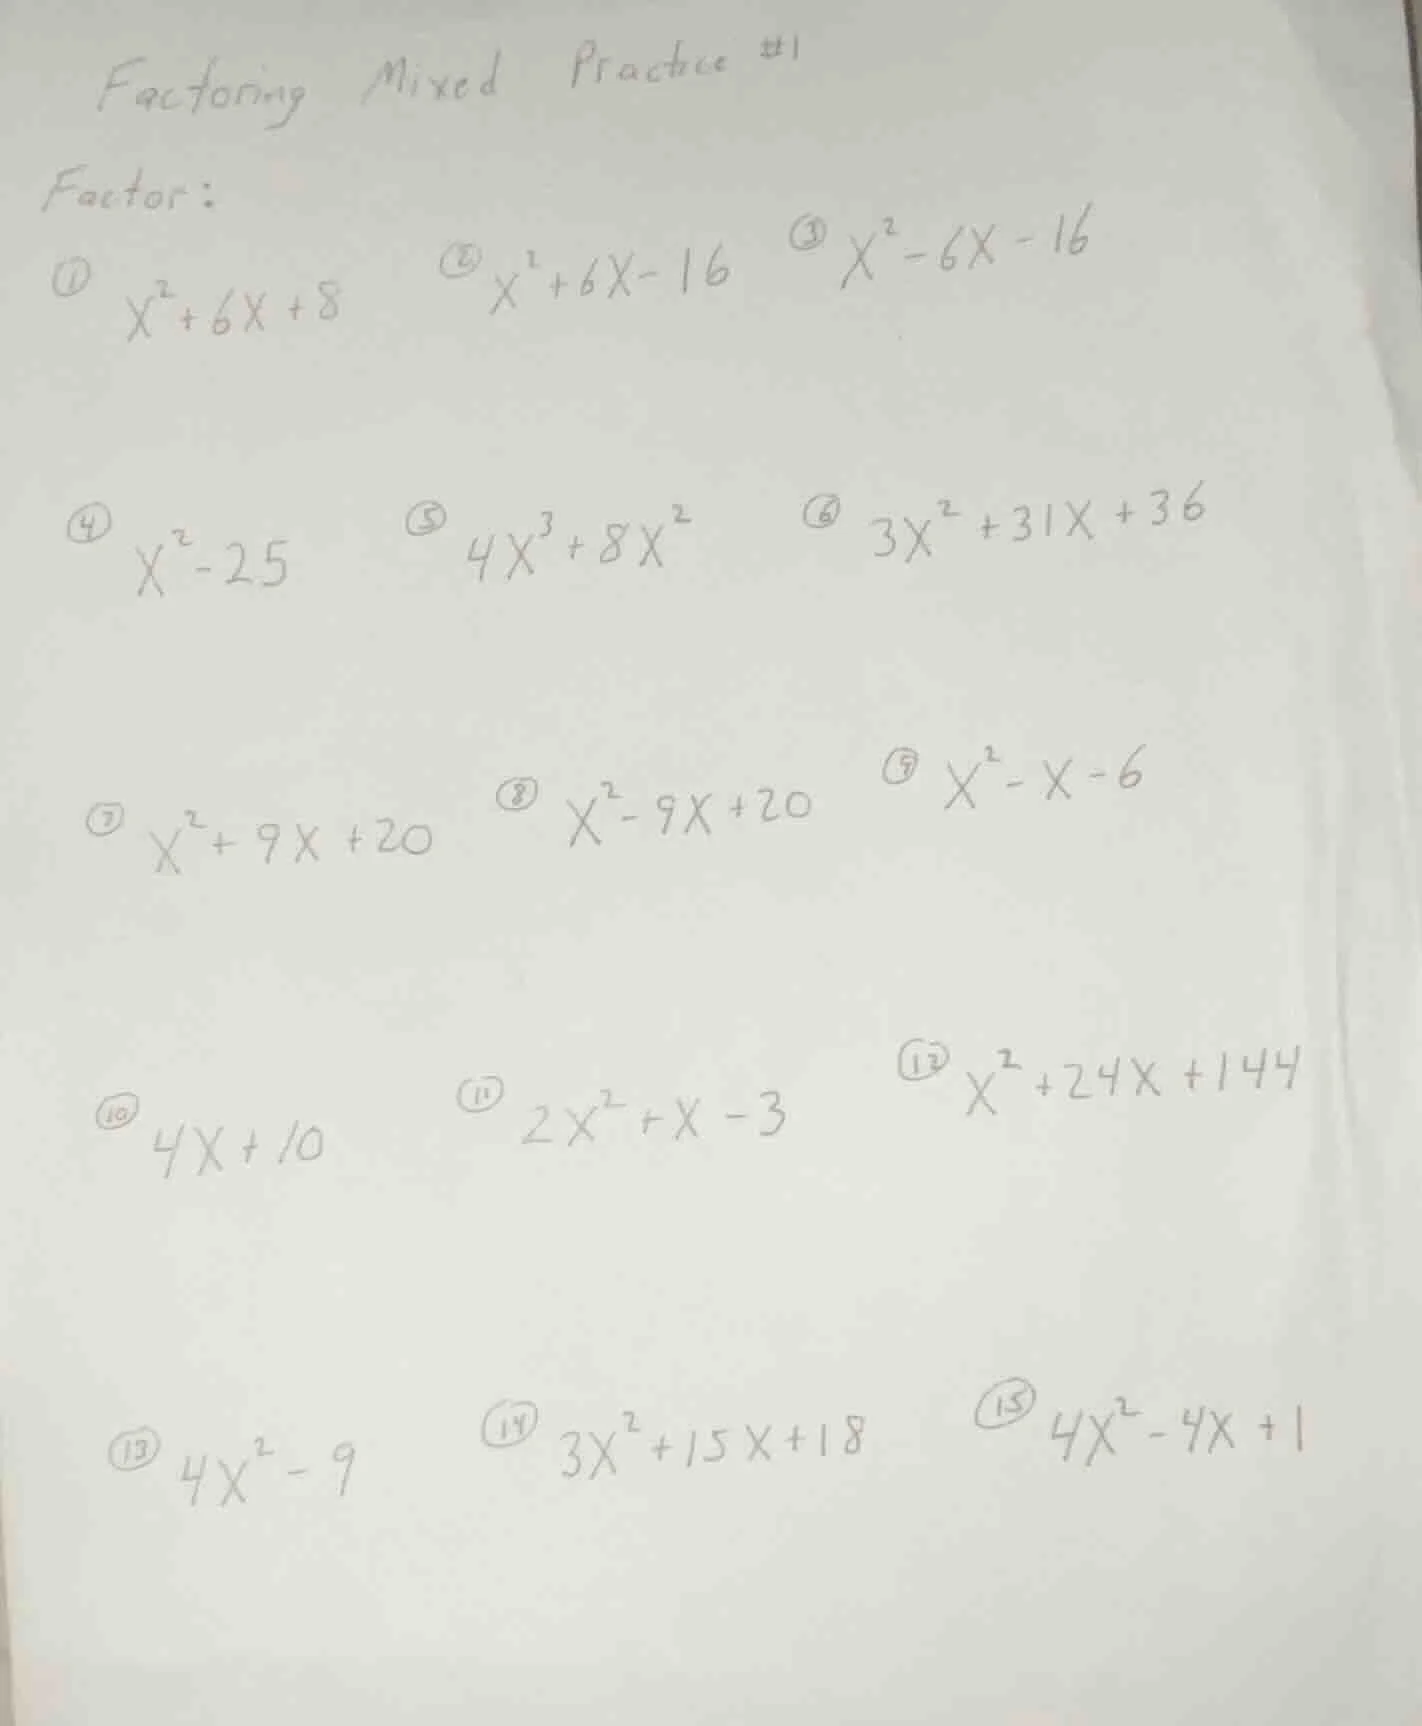 Factoring Mixed Practice #1
Factor:
① x²+6x+8 ② x²+6x-16 ③ x²-6x-16
④ x²-25 ⑤ 4x³+8x² ⑥ 3x²+31x+36
⑦ x²+9x+20 ⑧ x²-9x+20 ⑨ x²-x-6
⑩ 4x+10 ⑪ 2x²+x-3 ⑫ x²+24x+144
⑬ 4x²-9 ⑭ 3x²+15x+18 ⑮ 4x²-4x+1